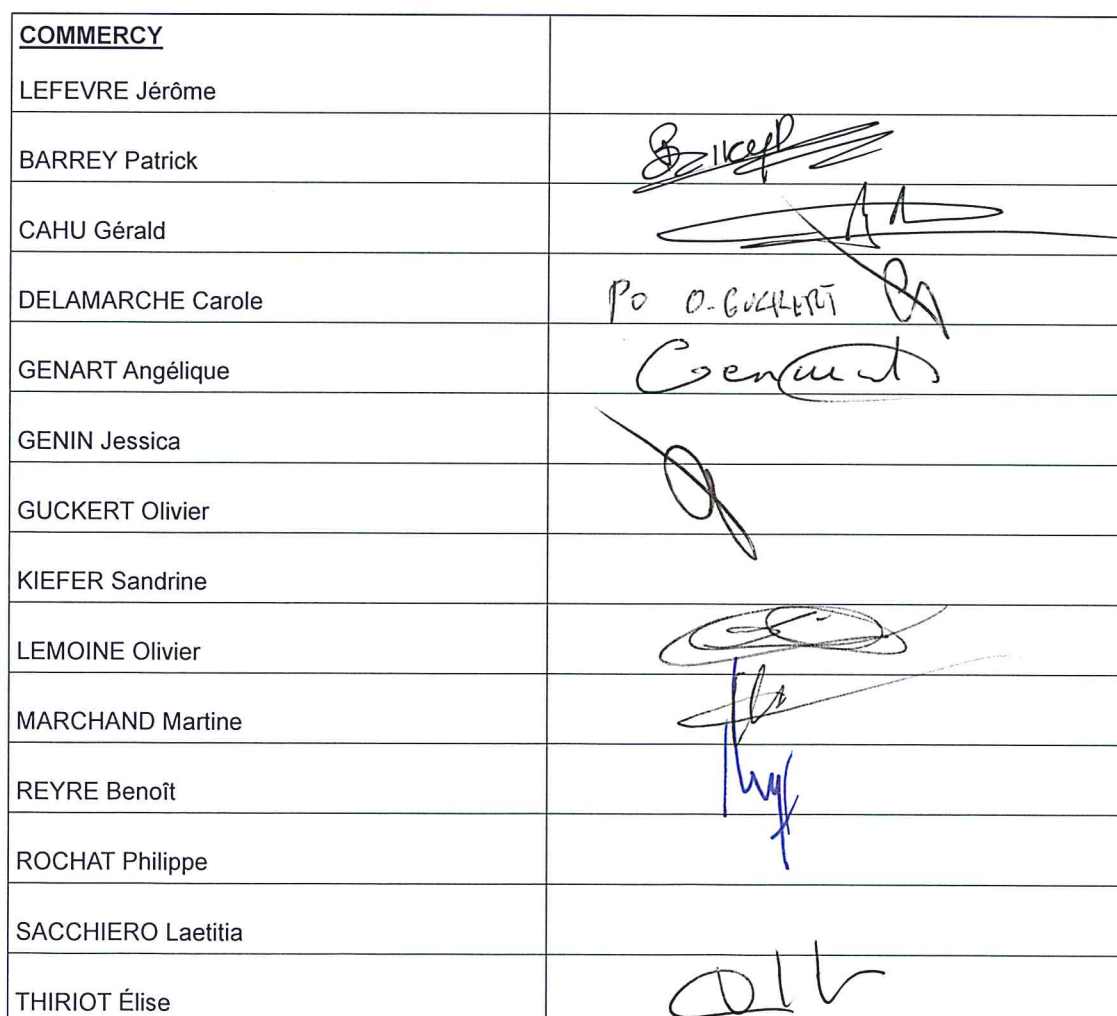 COMMERCY
LEFEVRE Jérôme
BARREY Patrick
CAHU Gérald
DELAMARCHE Carole
PO O. GUCKERT
GENART Angélique
GENIN Jessica
GUCKERT Olivier
KIEFER Sandrine
LEMOINE Olivier
MARCHAND Martine
REYRE Benoît
ROCHAT Philippe
SACCHIERO Laetitia
THIRIOT Élise